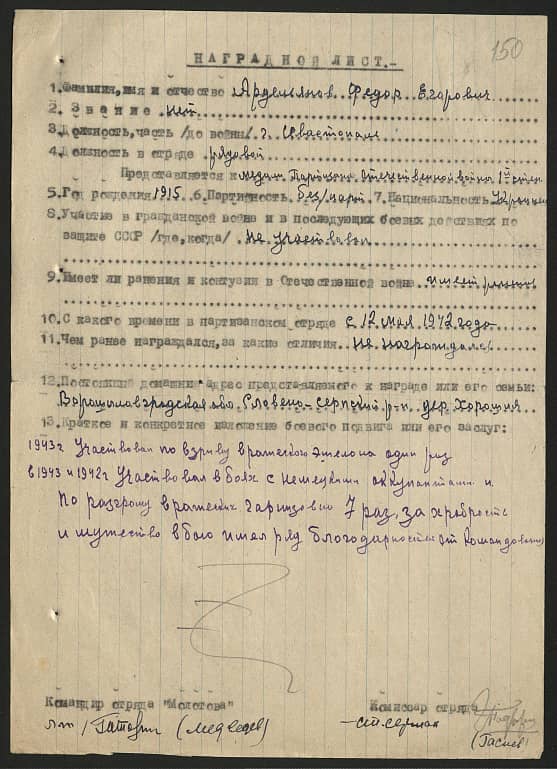 150
НАГРАДНОЙ ЛИСТ.-
1.Фамилия,имя и отчество Ардельянов Федор Егорович
2. Звание. нет
3.Должность,часть /до войны/ г. Севастополь
4.Должность в отряде рядовой
Представляется к медали Партизану Отечественной войны 1й степ.
5.Год рождения 1915 6.Партийность без/парт 7.Национальность Украинец
8.Участие в гражданской войне и в последующих боевых действиях по
защите СССР /где,когда/ Не участвовал
9.Имеет ли ранения и контузии в Отечественной войне
10.С какого времени в партизанском отряде с 12 мая 1942 года
11.Чем ранее награждался,за какие отличия Не награждался
12.Постоянный домашний адрес представляемого к награде или его семьи:
Ворошиловградская обл. Славено-сербский р-н. дер. Хорошия
13.Краткое и конкретное изложение боевого подвига или его заслуг:
1943г Участвовал по взрыву вражеского эшелона один раз
в 1943 и 1942г Участвовал в боях с немецкими оккупантами и
по разгрому вражеских гарнизонов 7 раз, за храбрость
и мужество в бою имел ряд благодарностей от Командования
Командир отряда "Молотова" Комиссар отряда
(Медведев)